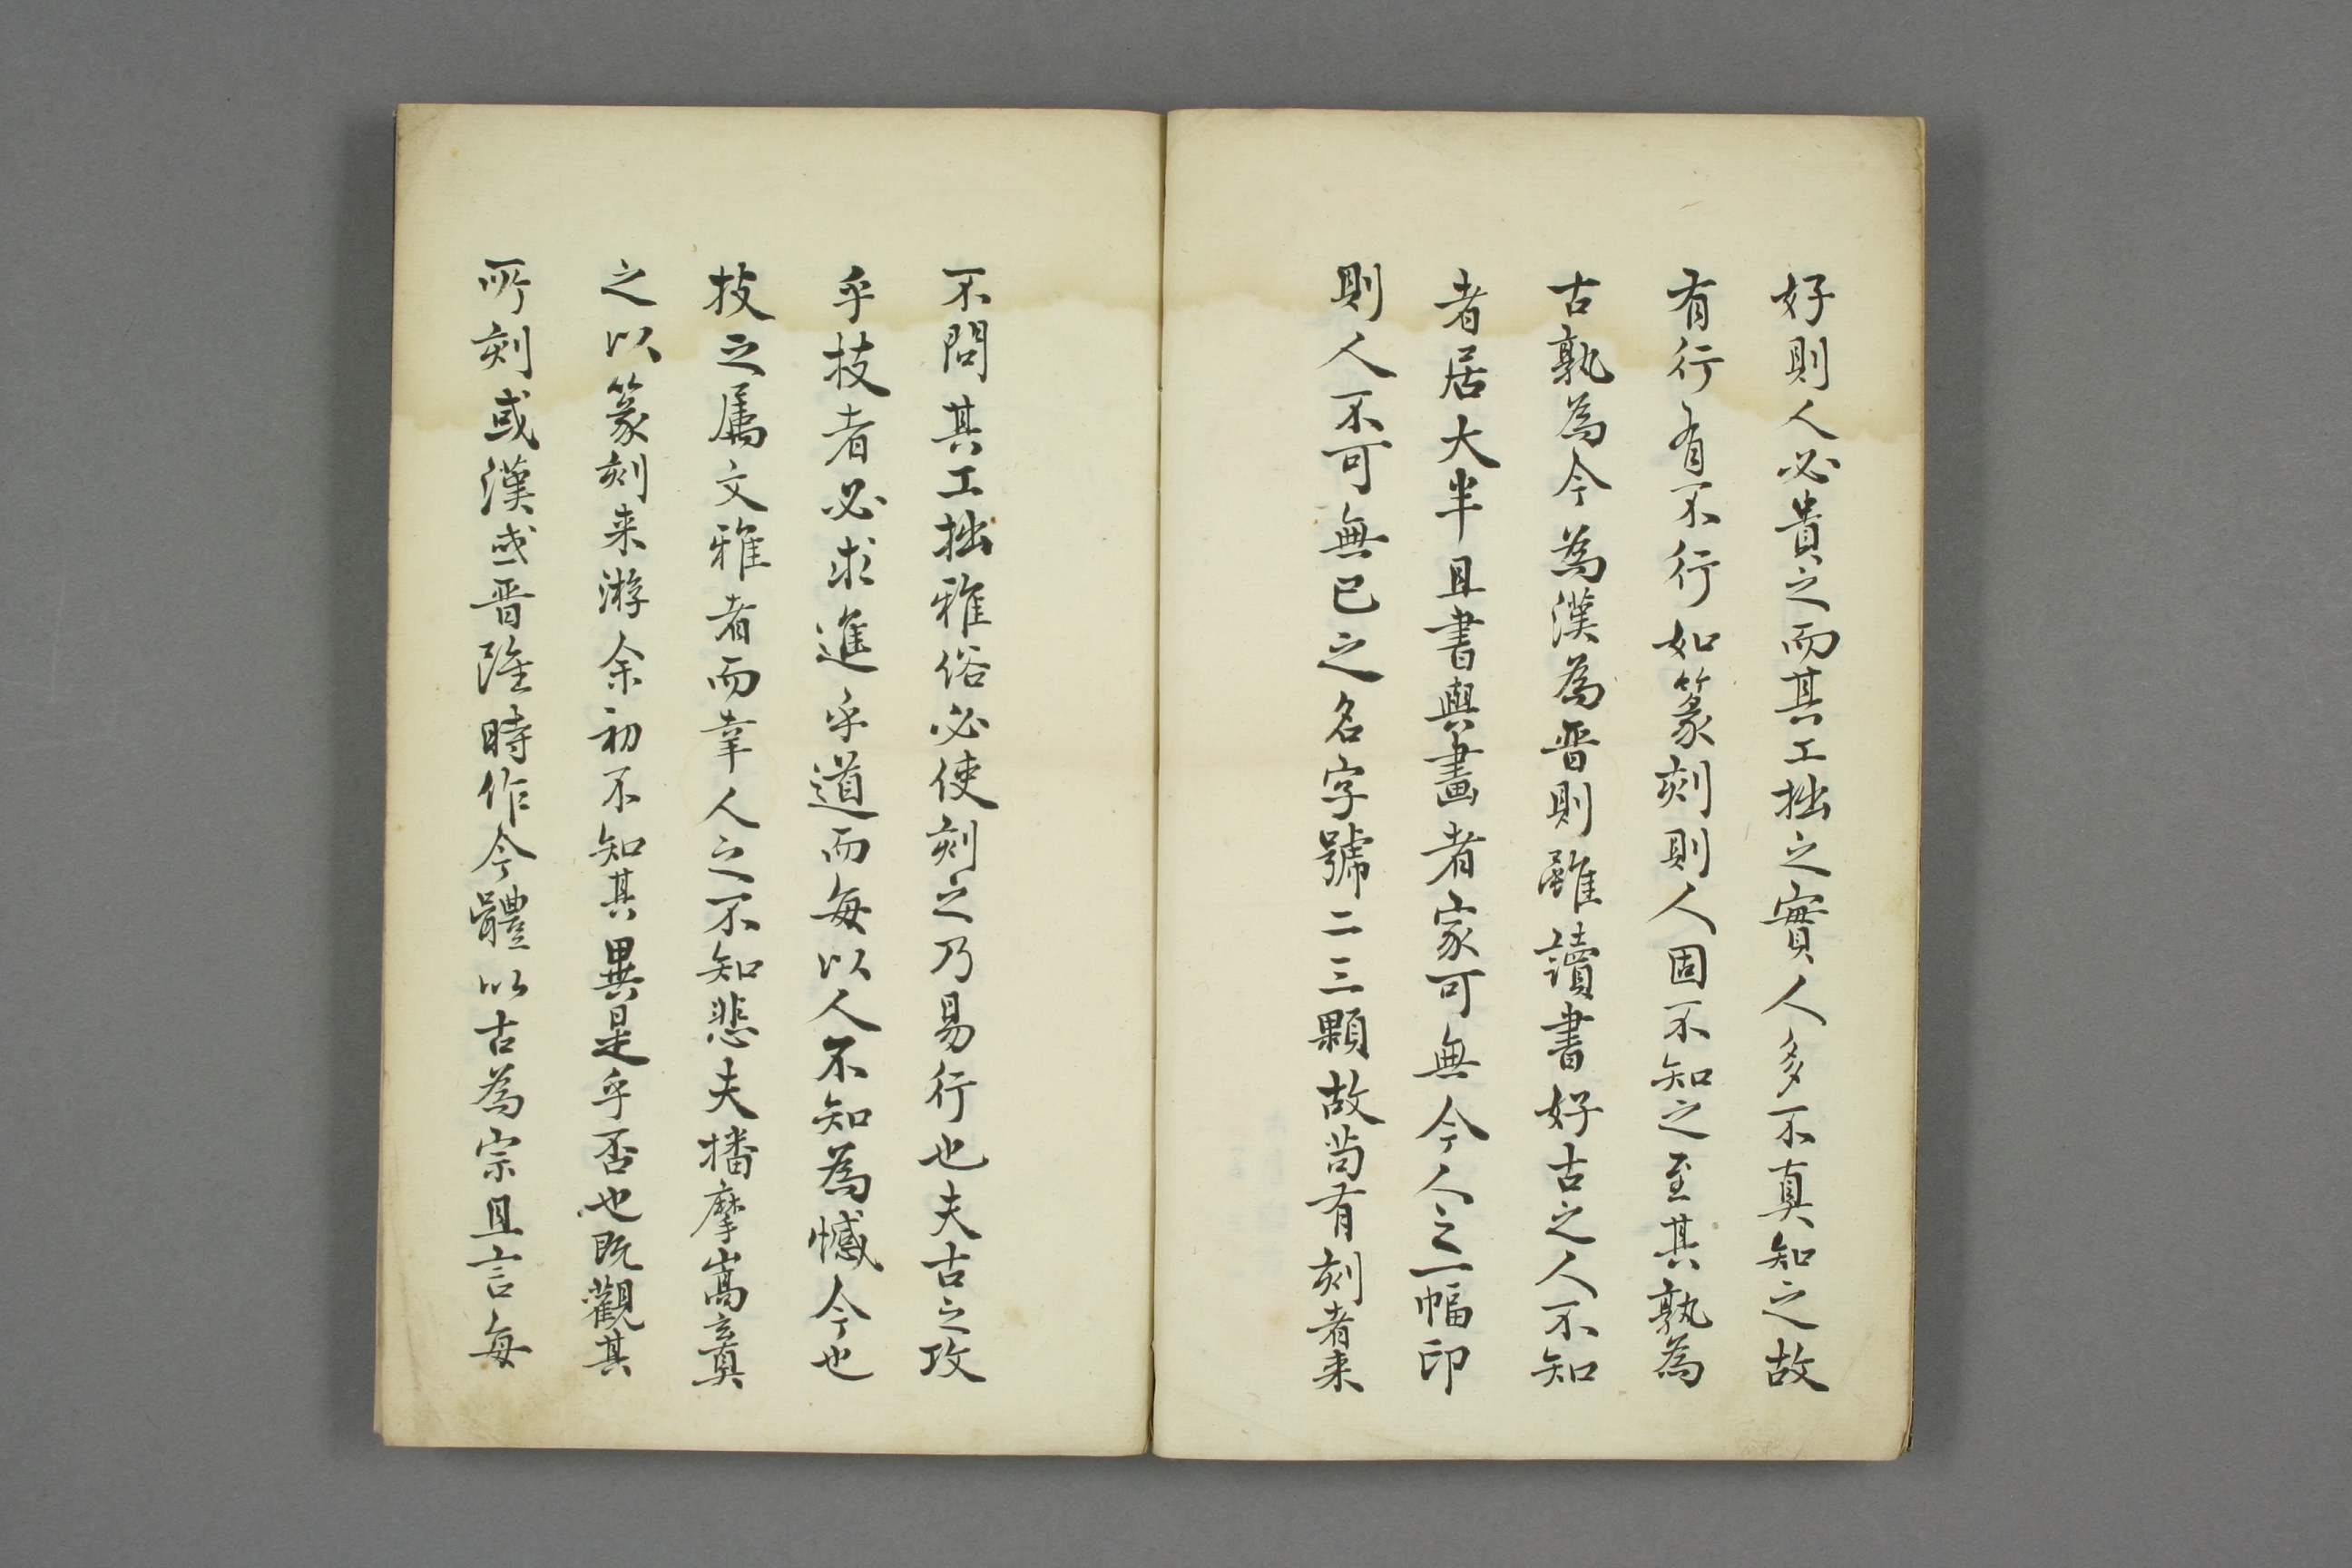 好則人必貴之而其工拙之實人多不真知之故
有行有不行如篆刻則人固不知之至其孰為
古孰為今為漢為晋則雖讀書好古之人不知
者居大半且書與畫者家可無今人之一幅印
則人不可無已之名字號二三顆故苟有刻者来
不問其工拙雅俗必使刻之乃易行也夫古之攻
乎技者必求進乎道而每以人不知為憾今也
技之屬文雅者而幸人之不知悲夫播摩嵩真
之以篆刻来游余初不知其異是乎否也既觀其
所刻或漢或晋隨時作今體以古為宗且言每